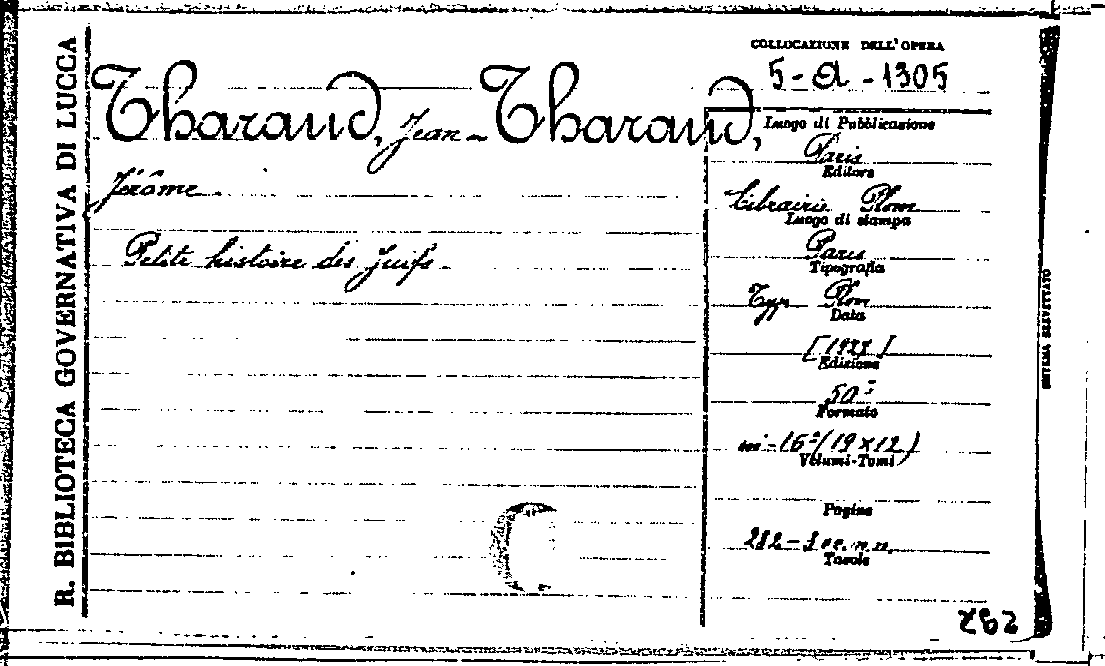 R. BIBLIOTECA GOVERNATIVA DI LUCCA
COLLOCAZIONE DELL'OPERA
5-A-1305
Tharaud, Jean-Tharaud,
Jérôme.
Petite histoire des Juifs.
Luogo di Pubblicazione
Paris
Editore
Librairie Plon
Luogo di stampa
Paris
Tipografia
Typ. Plon
Data
Edizione
50ª
Formato
in-16º(19×12)
Volumi-Tomi
Pagine
282-
Tavole